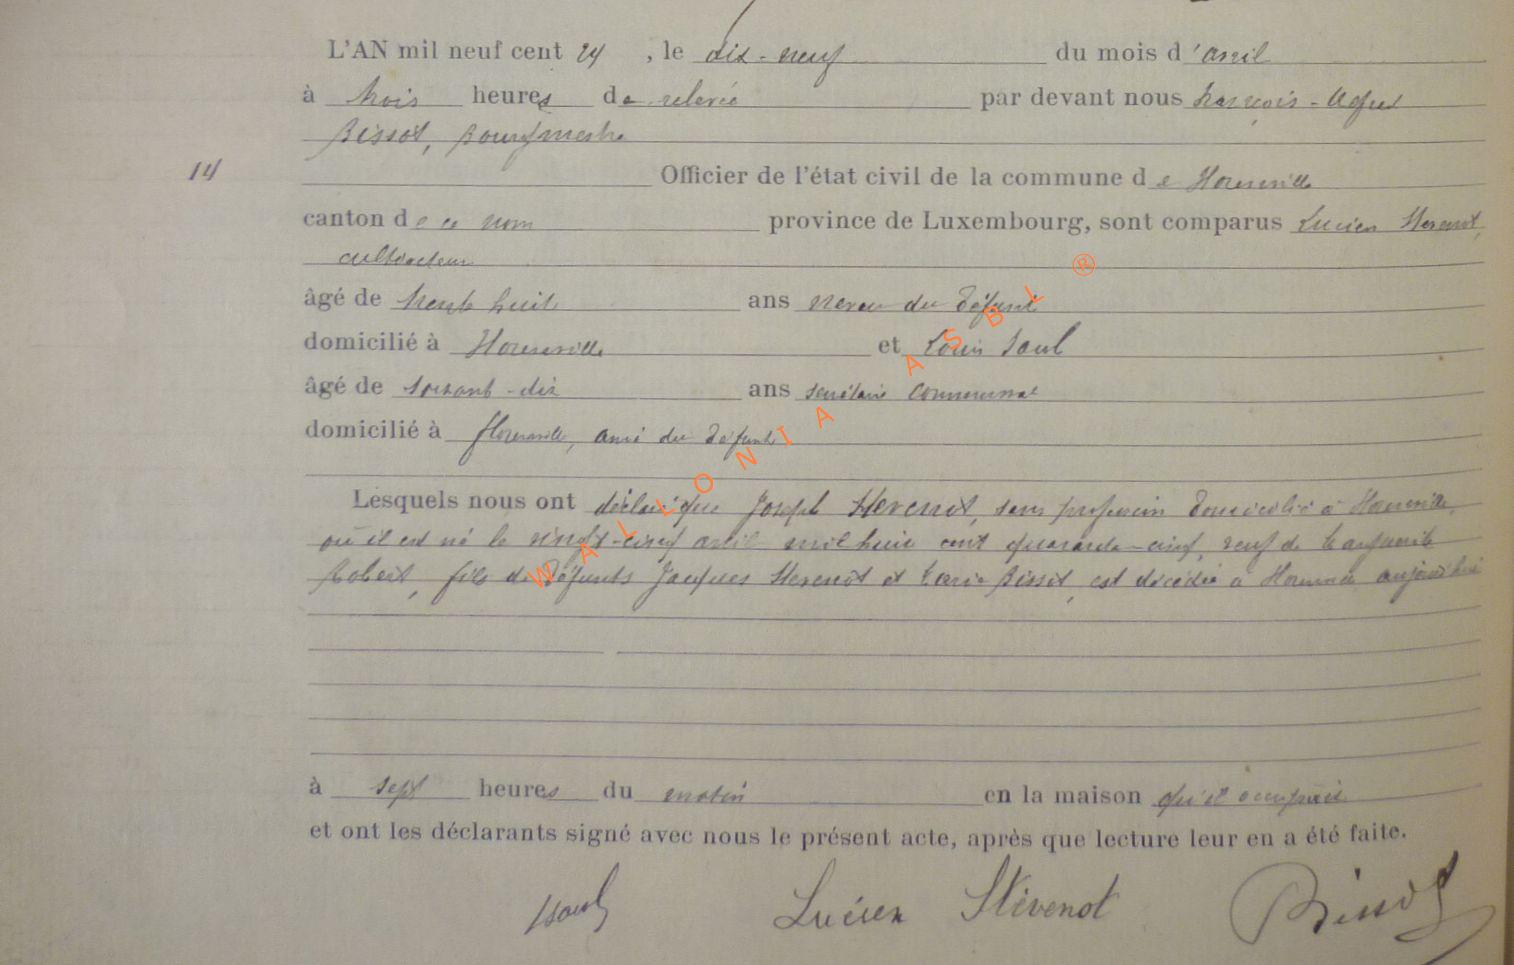 L'AN mil neuf cent 24, le dix-neuf du mois d'avril
à trois heures de relevée par devant nous françois-
Bissot, Bourgmestre
14 Officier de l'état civil de la commune de
canton de ce nom province de Luxembourg, sont comparus Lucien Stevenot,
cultivateur
âgé de trente huit ans neveu du défunt
domicilié à et Louis
âgé de soixante-dix ans secrétaire communal
domicilié à, ami du défunt
Lesquels nous ont déclaré que Joseph Stevenot, sans profession domicilié à
où il est né le vingt-cinq avril mil huit cent quarante-cinq, veuf de Marguerite
Robert, fils de défunts Jacques Stevenot et Marie Bissot, est décédé à aujourd'hui
à sept heures du matin en la maison qu'il occupait
et ont les déclarants signé avec nous le présent acte, après que lecture leur en a été faite.
Lucien Stévenot Bissot
WALLONIA ASBL ®